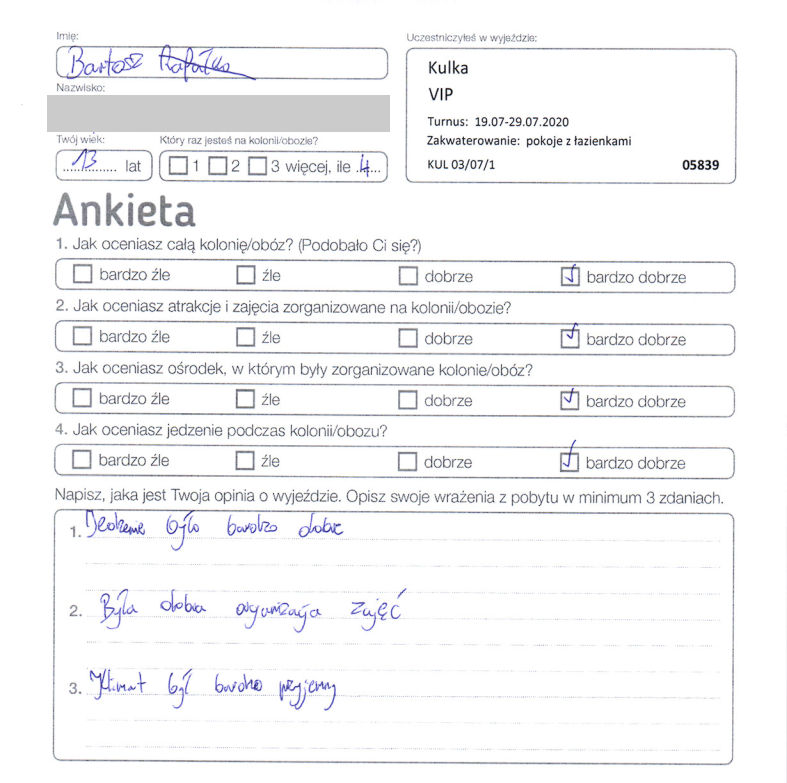 Imię:
Bartosz
Nazwisko:
Twój wiek:
13 lat
Który raz jesteś na kolonii/obozie?
1 2 3 więcej, ile 4
Uczestniczyłeś w wyjeździe:
Kulka
VIP
Turnus: 19.07-29.07.2020
Zakwaterowanie: pokoje z łazienkami
KUL 03/07/1 05839
Ankieta
1. Jak oceniasz całą kolonię/obóz? (Podobało Ci się?)
bardzo źle źle dobrze bardzo dobrze
2. Jak oceniasz atrakcje i zajęcia zorganizowane na kolonii/obozie?
bardzo źle źle dobrze bardzo dobrze
3. Jak oceniasz ośrodek, w którym były zorganizowane kolonie/obóz?
bardzo źle źle dobrze bardzo dobrze
4. Jak oceniasz jedzenie podczas kolonii/obozu?
bardzo źle źle dobrze bardzo dobrze
Napisz, jaka jest Twoja opinia o wyjeździe. Opisz swoje wrażenia z pobytu w minimum 3 zdaniach.
1. Jedzenie było bardzo dobre
2. Była dobra organizacja zajęć
3. Klimat był bardzo przyjemny